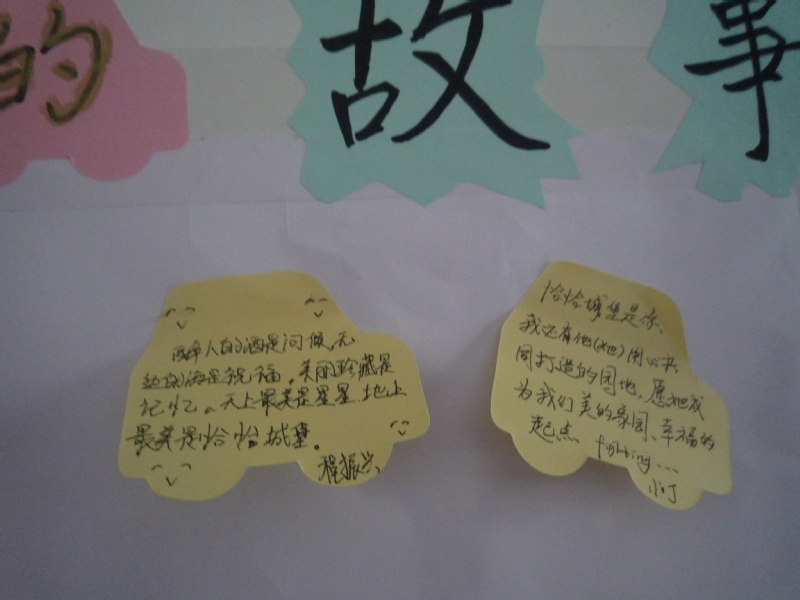 的
故
事
醉人的酒是问候,无
边的海是祝福。美丽珍藏是
记忆。天上最美是星星,地上
最美是恰恰城堡。
程振兴
恰恰城堡是你、
我还有他(她)用心共
同打造的园地,愿她成
为我们美的家园、幸福的
起点
小丁